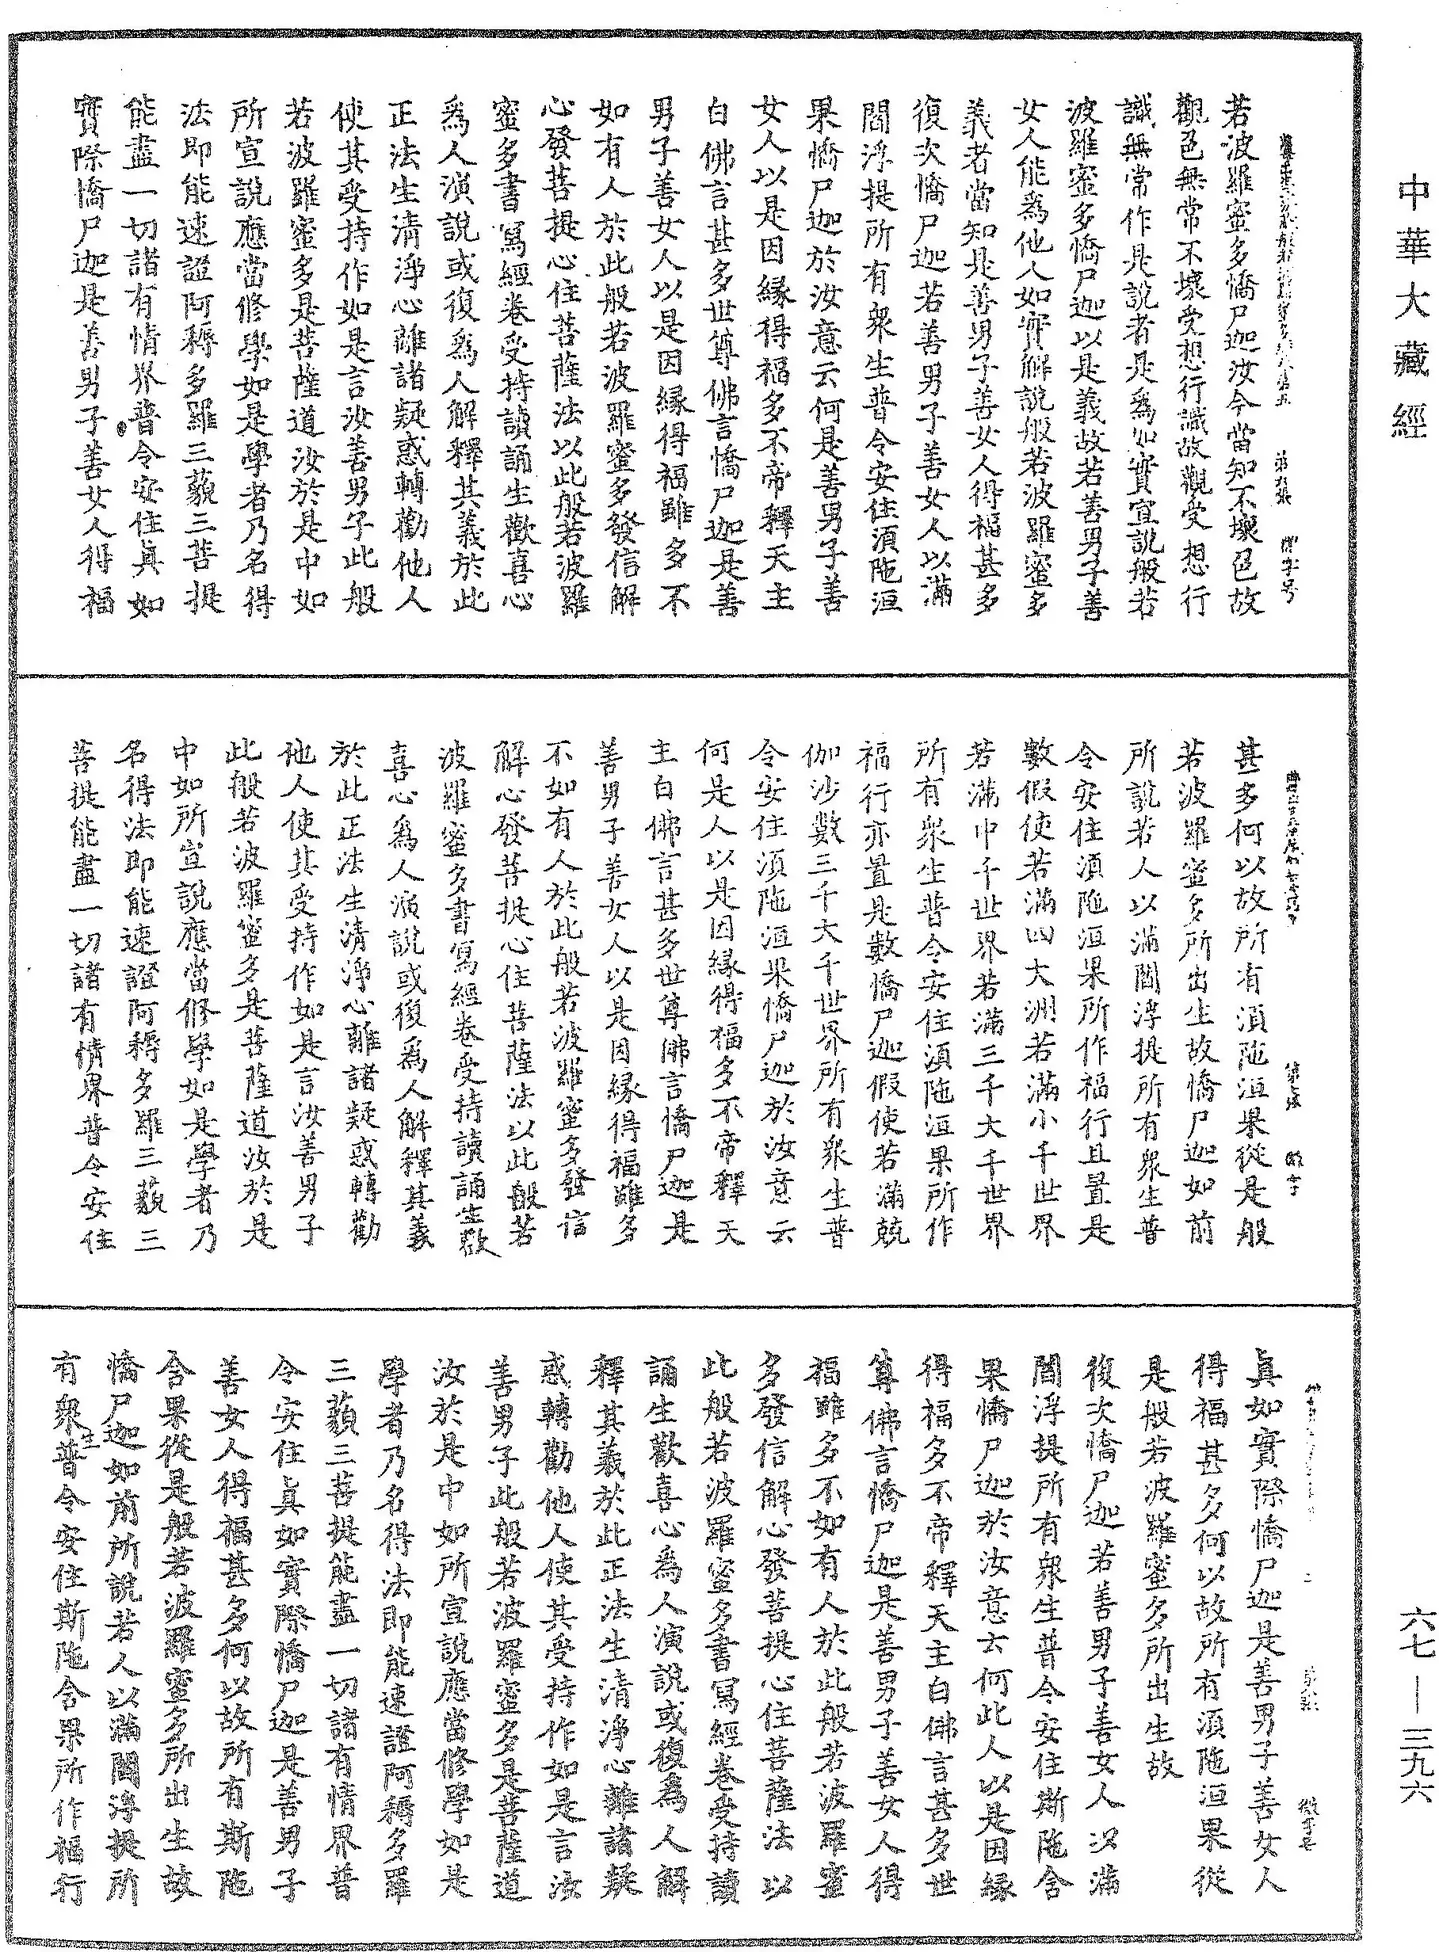 中華大藏經
若波羅蜜多憍尸迦汝今當知不壞色故
觀色無常不壞受想行識故觀受想行
識無常作是說者是為如實宣說般若
波羅蜜多憍尸迦以是義故若善男子善
女人能為他人如實解說般若波羅蜜多
義者當知是善男子善女人得福甚多
復次憍尸迦若善男子善女人以滿
閻浮提所有眾生普令安住須陁洹
果憍尸迦於汝意云何是善男子善
女人以是因緣得福多不帝釋天主
白佛言甚多世尊佛言憍尸迦是善
男子善女人以是因緣得福雖多不
如有人於此般若波羅蜜多發信解
心發菩提心住菩薩法以此般若波羅
蜜多書寫經卷受持讀誦生歡喜心
為人演說或復為人解釋其義於此
正法生清淨心離諸疑惑轉勸他人
使其受持作如是言汝善男子此般
若波羅蜜多是菩薩道汝於是中如
所宣說應當修學如是學者乃名得
法即能速證阿耨多羅三藐三菩提
能盡一切諸有情界普令安住真如
實際憍尸迦是善男子善女人得福
甚多何以故所有須陁洹果從是般
若波羅蜜多所出生故憍尸迦如前
所說若人以滿閻浮提所有眾生普
令安住須陁洹果所作福行且置是
數假使若滿四大洲若滿小千世界
若滿中千世界若滿三千大千世界
所有眾生普令安住須陁洹果所作
福行亦置是數憍尸迦假使若滿兢
伽沙數三千大千世界所有眾生普
令安住須陁洹果憍尸迦於汝意云
何是人以是因緣得福多不帝釋天
主白佛言甚多世尊佛言憍尸迦是
善男子善女人以是因緣得福雖多
不如有人於此般若波羅蜜多發信
解心發菩提心住菩薩法以此般若
波羅蜜多書寫經卷受持讀誦生歡
喜心為人演說或復為人解釋其義
於此正法生清淨心離諸疑惑轉勸
他人使其受持作如是言汝善男子
此般若波羅蜜多是菩薩道汝於是
中如所宣說應當修學如是學者乃
名得法即能速證阿耨多羅三藐三
菩提能盡一切諸有情界普令安住
真如實際憍尸迦是善男子善女人
得福甚多何以故所有須陁洹果從
是般若波羅蜜多所出生故
復次憍尸迦若善男子善女人以滿
閻浮提所有眾生普令安住斯陁含
果憍尸迦於汝意云何此人以是因緣
得福多不帝釋天主白佛言甚多世
尊佛言憍尸迦是善男子善女人得
福雖多不如有人於此般若波羅蜜
多發信解心發菩提心住菩薩法以
此般若波羅蜜多書寫經卷受持讀
誦生歡喜心為人演說或復為人解
釋其義於此正法生清淨心離諸疑
惑轉勸他人使其受持作如是言汝
善男子此般若波羅蜜多是菩薩道
汝於是中如所宣說應當修學如是
學者乃名得法即能速證阿耨多羅
三藐三菩提能盡一切諸有情界普
令安住真如實際憍尸迦是善男子
善女人得福甚多何以故所有斯陁
含果從是般若波羅蜜多所出生故
憍尸迦如前所說若人以滿閻浮提所
有眾生普令安住斯陁含果所作福行
六七—三九六